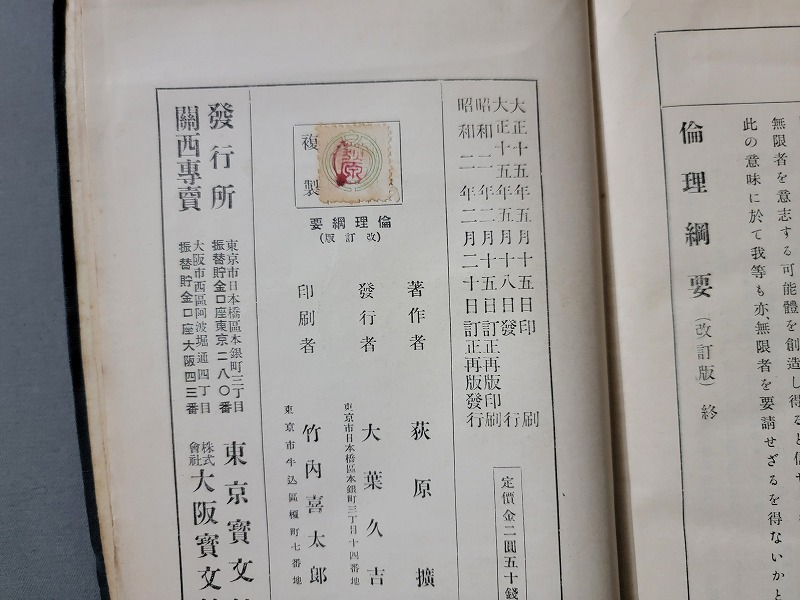 無限者を意志する可能體を創造し得なと信
此の意味に於て我等も亦、無限者を要請せざるを得ないかと
倫理綱要(改訂版)終
大正十五年五月十五日印刷
大正十五年五月十八日發行
昭和二年二月十五日訂正再版印刷
昭和二年二月二十日訂正再版發行
定價金二圓五十錢
複製
荻原
倫理綱要
(改訂版)
著作者 荻原擴
發行者 大葉久吉
東京市日本橋區本銀町三丁目十四番地
印刷者 竹內喜太郎
東京市牛込區榎町七番地
發行所
東京市日本橋區本銀町三丁目
振替貯金口座東京二八〇番
東京寶文
關西專賣
大阪市西區阿波堀通四丁目
振替貯金口座大阪四三番
株式會社大阪寶文